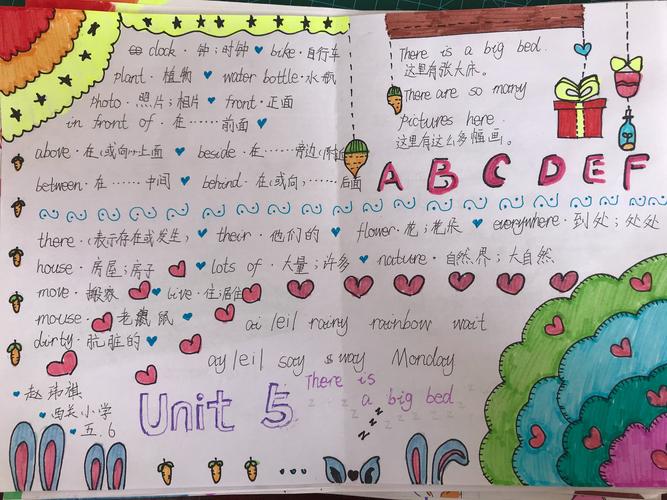 clock · 钟；时钟 bike · 自行车
plant · 植物 water bottle · 水瓶
photo · 照片；相片 front · 正面
in front of · 在……前面
above · 在(或向)…上面 beside · 在……旁边(附近)
between · 在……中间 behind · 在(或向)……后面
There is a big bed.
这里有张大床。
There are so many
pictures here.
这里有这么多幅画。
A B C D E F
there · (表示存在或发生) their · 他们的 flower · 花；花朵 everywhere · 到处；处处
house · 房屋；房子 lots of · 大量；许多 nature · 自然界；大自然
move · 搬家 live · 住；居住
mouse · 老鼠
dirty · 肮脏的
ai /ei/ rainy rainbow wait
ay /ei/ say way Monday
赵 祺
西关小学
五.6
Unit 5
There is
a big bed
z z z z z z z z
z z z z